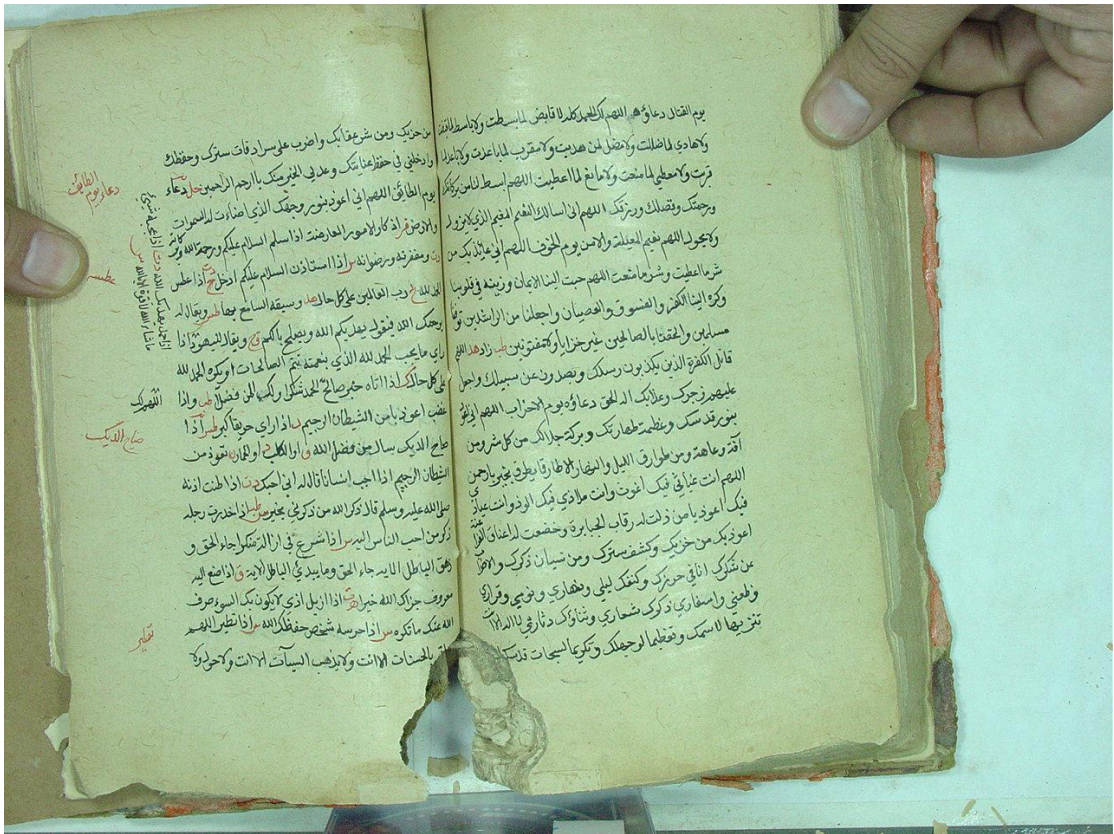 يوم القتال دعاؤه اللهم لك الحمد كله لا قابض لما بسطت ولا باسط لما قبضت
ولا هادي لما ضللت ولا مضل لمن هديت ولا مقرب لما باعدت ولا باعد لما
قربت ولا معطي لما منعت ولا مانع لما اعطيت اللهم ابسط لنا من بركاتك
ورحمتك وفضلك ورزقك اللهم اني اسالك النعيم المقيم الذي لا يزول
ولا يحول اللهم نعيم المعيلة والامن يوم الخوف اللهم اني عائذ بك من
شر ما اعطيت وشر ما منعت اللهم حبب الينا الايمان وزينه في قلوبنا
وكره الينا الكفر والفسوق والعصيان واجعلنا من الراشدين توفنا
مسلمين والحقنا بالصالحين غير خزايا ولا مفتونين زاد اللهم
قاتل الكفرة الذين يكذبون رسلك ويصدون عن سبيلك واجعل
عليهم زجرك وعذابك اله الحق دعاؤه يوم الاحزاب اللهم اني اعوذ
بنور قدسك وبعظمة طهارتك وبركة جلالك من كل شر ومن
آفة وعاهة ومن طوارق الليل والنهار الا طارقا يطرق بخير يا رحمن
اللهم انت غياثي فبك اغوث وانت ملاذي فبك الوذ وانت عياذي
فبك اعوذ يا من ذلت له رقاب الجبابرة وخضعت له اعناق الفراعنة
اعوذ بك من خزيك وكشف سترك ومن نسيان ذكرك والاضراب
عن شكرك انا في حرزك وكنفك ليلي ونهاري ونومي وقراري
وظعني واسفاري ذكرك شعاري وثناؤك دثاري لا اله الا انت
تنزيها لاسمك وتعظيما لوجهك وتكريما لسبحات قدسك
من خزيك ومن شر عقابك واضرب على سرادقات سترك وحفظك
وادخلني في حفظ عنايتك وعد لي الخير منك يا ارحم الراحمين دعاء
يوم الطائف اللهم اني اعوذ بنور وجهك الذي اضاءت له السموات
والارض اذ كار الامور العارضة اذا سلم السلام عليكم ورحمة الله وبركاته
ومغفرته ورضوانه اذا استاذن السلام عليكم ادخل اذا عطس
الحمد لله رب العالمين على كل حال وسيقه السامع بها ويقال له
يرحمك الله فيقوله يهديكم الله ويصلح بالكم ويقال لليهود اذا
راى ما يحب الحمد لله الذي بنعمته تتم الصالحات او يكره الحمد لله
على كل حال اذا اتاه خبر صالح الحمد شكرا ولك المن فضل واذا
غضب اعوذ بالله من الشيطان الرجيم اذا راى حريقا كبر اذا
صاح الديك يسال من فضل الله او الكلب او الحمار تعوذ من
الشيطان الرجيم اذا احب انسانا قال له اني احبك اذا طنت اذنه
صلى الله عليه وسلم قال ذكر الله من ذكرني بخير اذا خدرت رجله
ذكر من احب الناس اليه اذا شرع في ازالة منكر جاء الحق و
زهق الباطل الاية جاء الحق وما يبدئ الباطل الاية اذا صنع اليه
معروف جزاك الله خيرا اذا ازيل اذى لا يكون بك السوء صرف
الله عنك ما تكره اذا حرسه شخص حفظك الله اذا تطير اللهم
بالحسنات الا انت ولا يذهب السيآت الا انت ولا حول ولا
دعاء يوم الطائف
عطسه
اللهم لك
صاح الديك
تطير